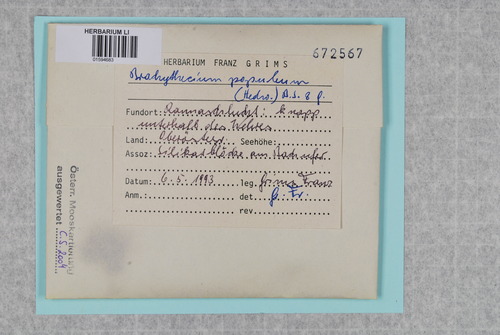 HERBARIUM LI
HERBARIUM FRANZ GRIMS
672567
Brachythecium populeum
(Hedw.) B.S. & G.
Fundort: Rannaschlucht: knapp
unterhalb der
Land: Oberösterr. Seehöhe:
Assoz: Silikatblöcke am
Datum: 6.5.1993 leg. Grims Franz
Anm.: det. G. Fr.
rev.
Österr. Mooskartierung
ausgewertet C.S. 2004